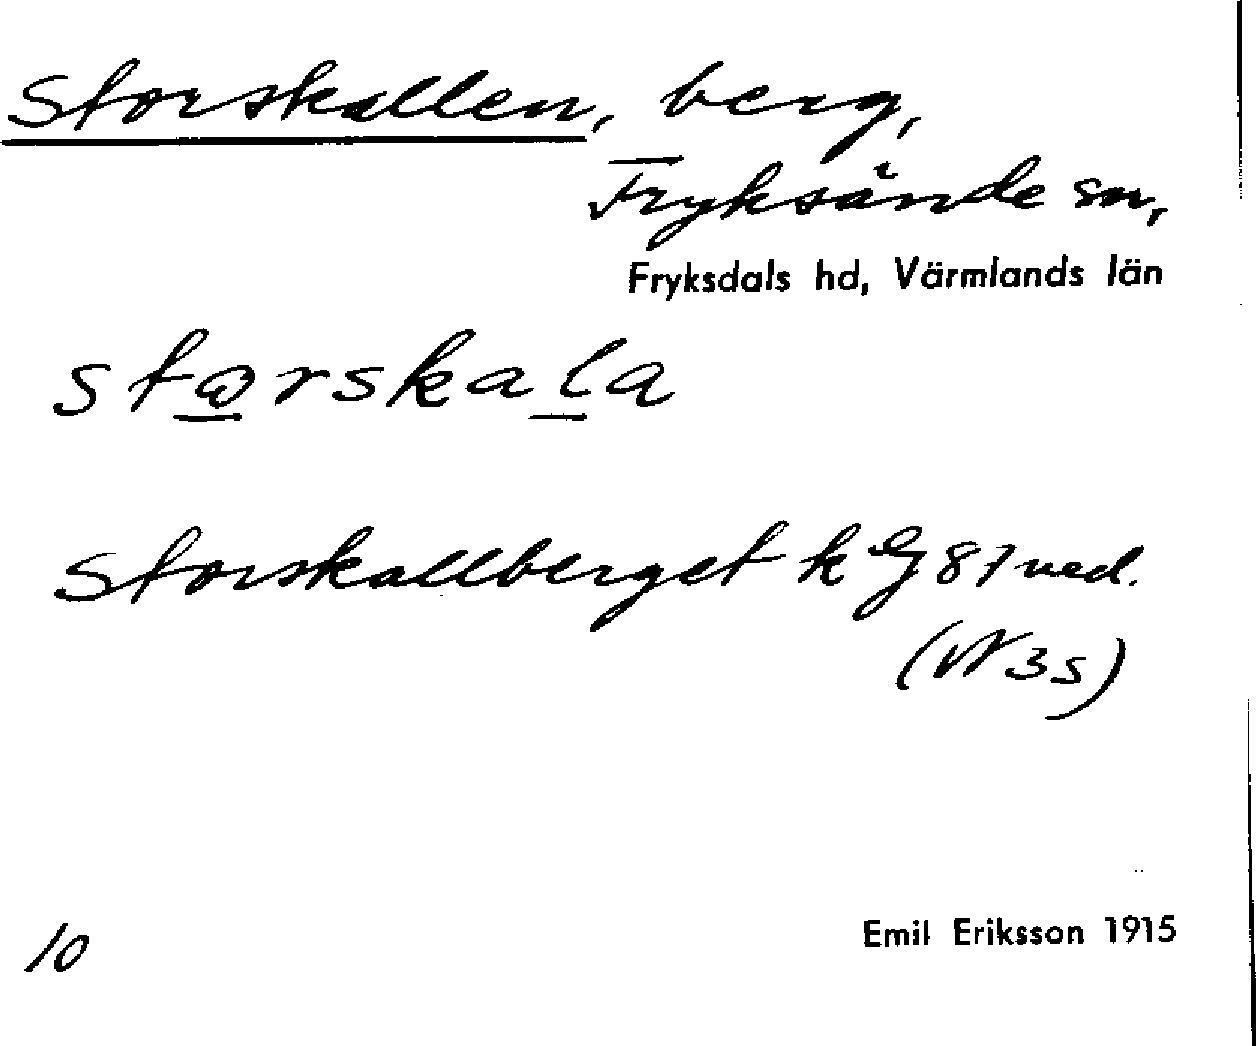 Storskallen, berg,
Fryksände sn,
Fryksdals hd, Värmlands län
storskala
Storskallberget k G 87 ned.
(W 3s)
10
Emil Eriksson 1915